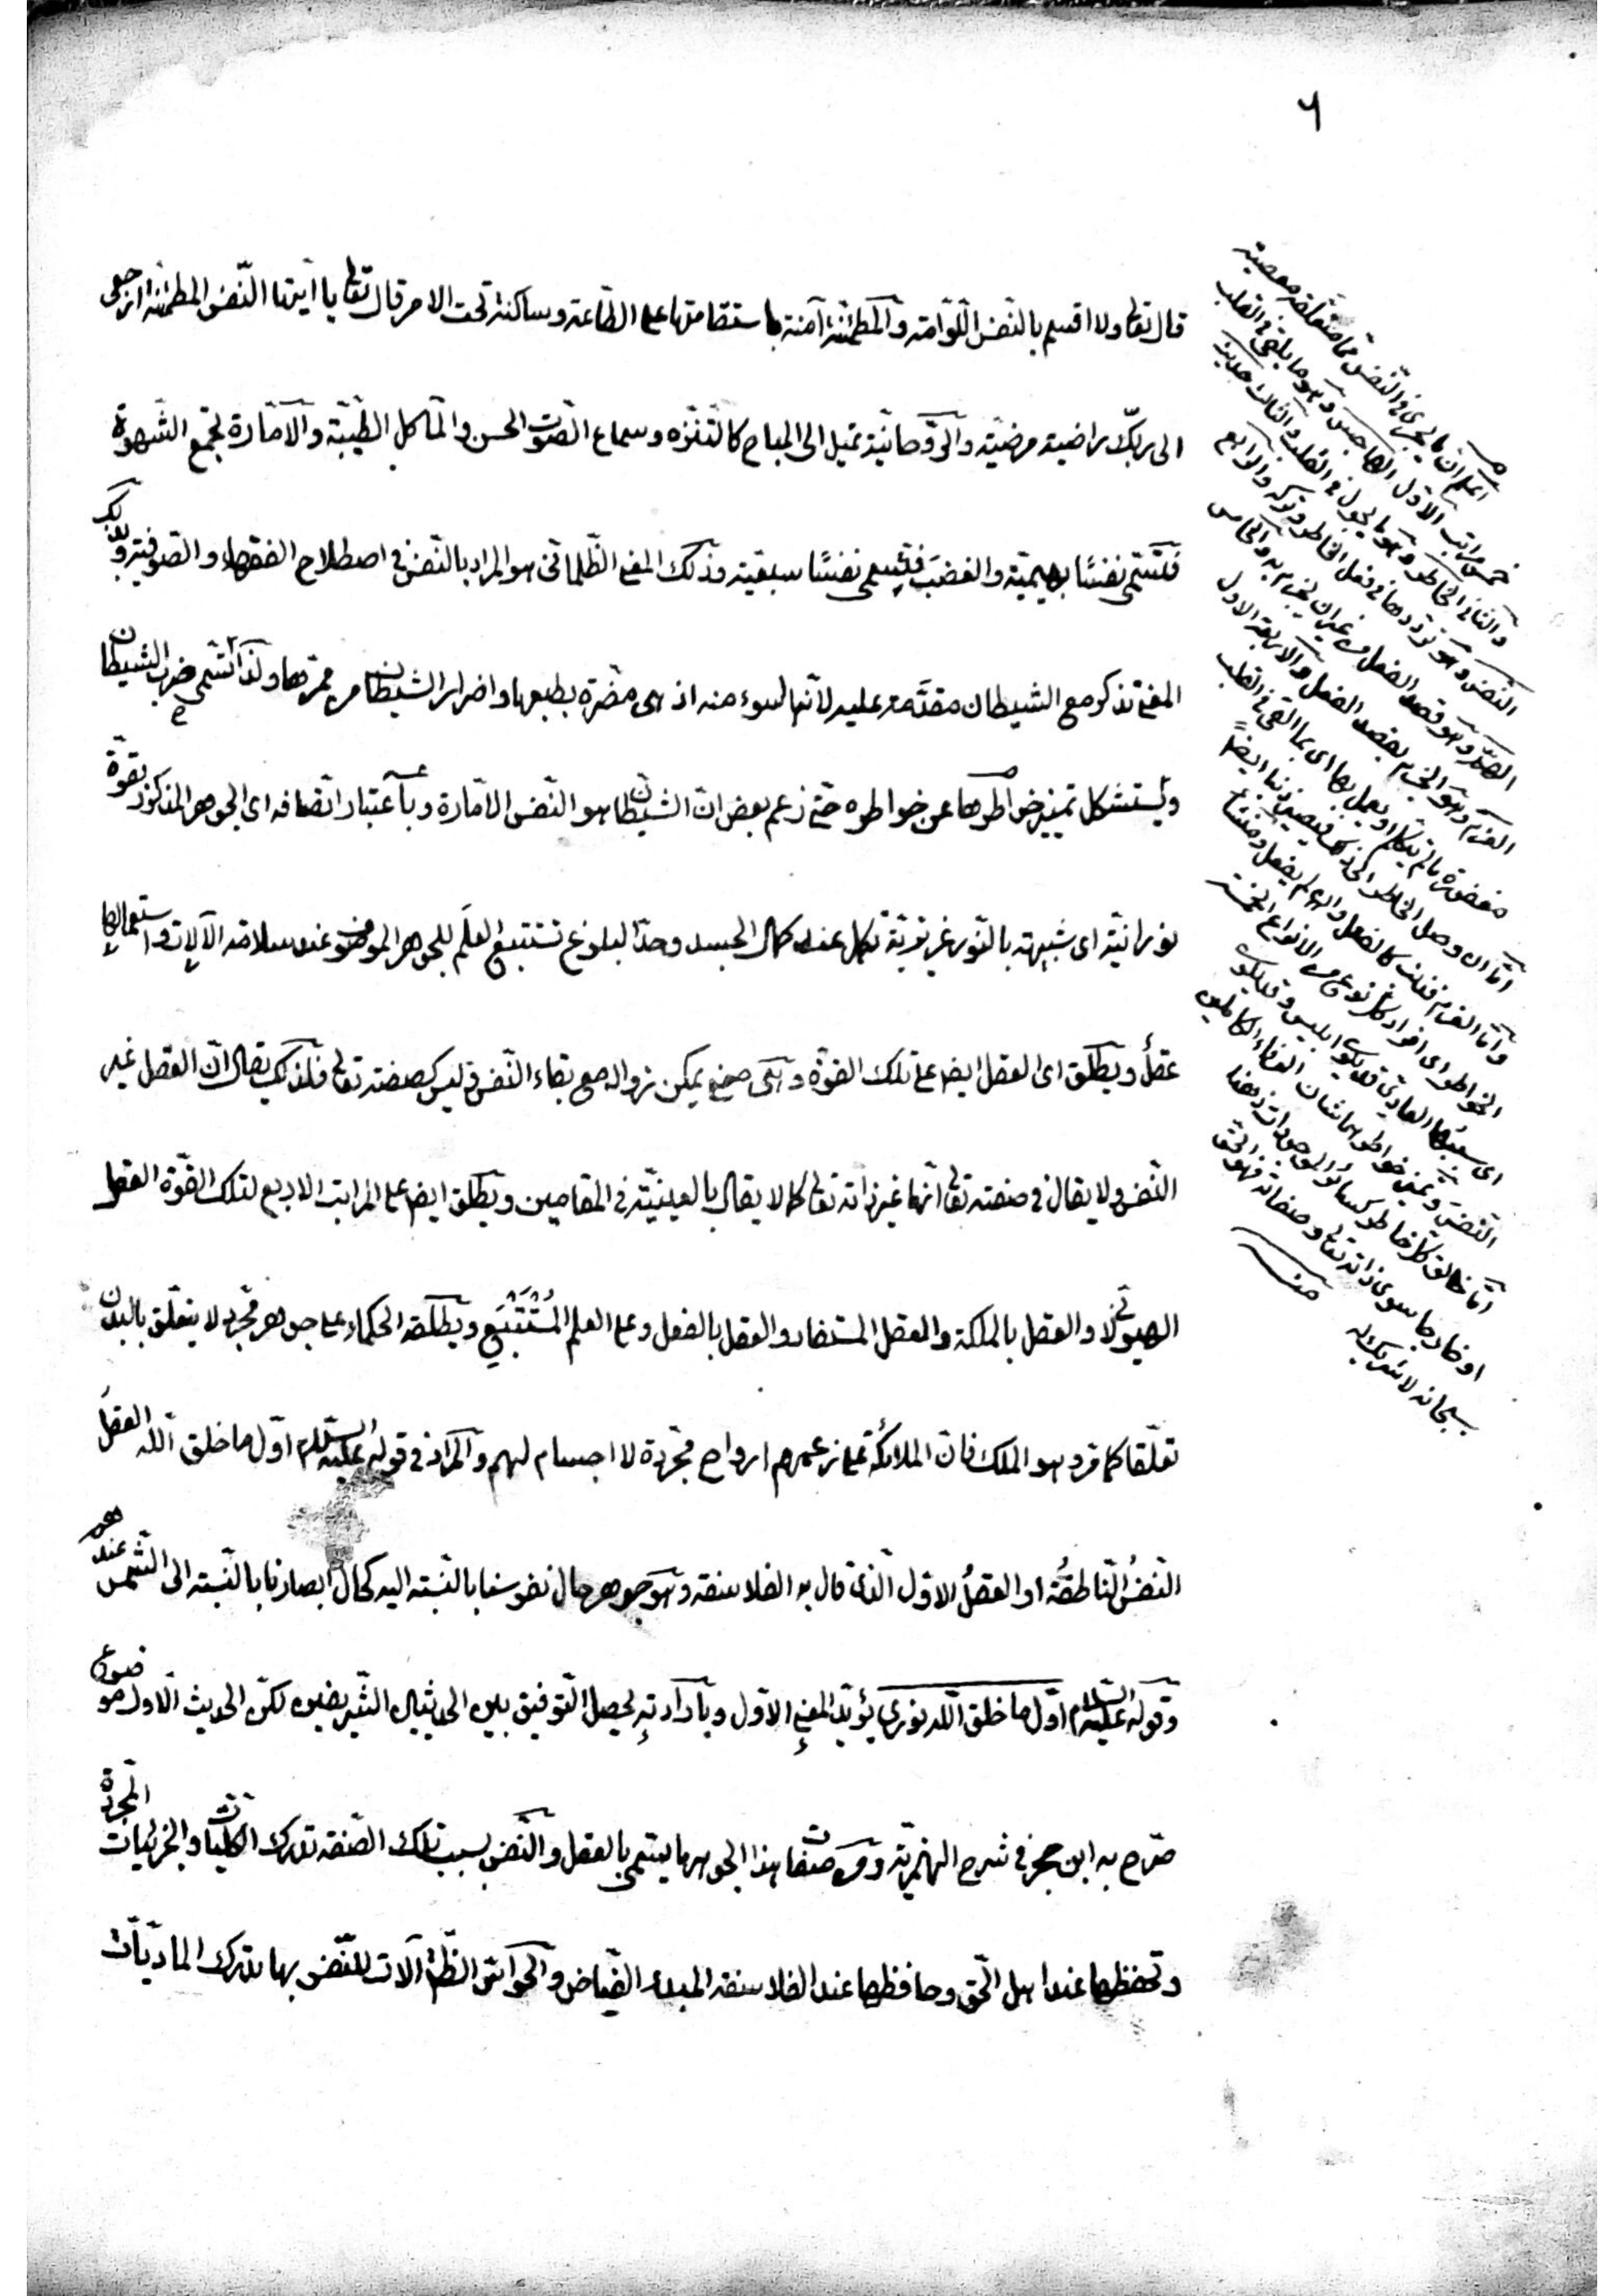 ٦
قال تعالى ولا اقسم بالنفس اللوّامة والمطمئنة آمنة باستقامتها على الطاعة وساكنة تحت الامر قال تعالى يا ايتها النّفس المطمئنة ارجعى
الى ربّك راضية مرضيّة والرّوحانيّة تميل الى المباح كالتنزّه وسماع الصّوت الحسن والمآكل الطيّبة والامّارة تجمع الشّهوة
فتسمّى نفسًا بهيميّة والغضبَ فتسمى نفسًا سبعيّة وذلك المعنى الظّلمانى هو المراد بالنّفس فى اصطلاح الفقهاء والصّوفيّة وبذلك
المعنى تذكر مع الشيطان مقدَّمة عليه لأنّها اسوء منه اذ هى مضرّة بطبعها واضرار الشيطان من ممرّها ولذا تسمى ضرب الشيطان
ويُستشكل تمييز خواطرها عن خواطره حتّى زعم بعض انّ الشيطان هو النّفس الامّارة وباعتبار اتّصافه اى الجوهر المذكور بقوّة
نورانيّة اى شبيهة بالنّور غريزيّة تكمل عند كمال الجسد وحدّ البلوغ تستتبع العلم للجوهر الموصوف عند سلامة الآلات واستعمالها
عقلٌ ويطلق اى العقل ايضا على تلك القوّة وهى صفة يمكن زواله مع بقاء النّفس فليس كصفته تعالى فلذلك يقال انّ العقل غير
النّفس ولا يقال فى صفته تعالى انّها غير ذاته تعالى كما لا يقال بالعينيّة فى المقامين ويطلق ايضا على المراتب الاربع لتلك القوّة العقل
الهيولانى والعقل بالملكة والعقل المستفاد والعقل بالفعل وعلى العلم المُسْتَتْبَعِ ويطلقه الحكماء على جوهر مجرد لا يتعلّق بالبدن
تعلّقا كما مر وهو الملك فانّ الملائكة على زعمهم ارواح مجرّدة لا اجسام لهم والمراد فى قوله عليه السّلام اوّل ما خلق اللّه العقل
النّفسُ النّاطقةُ او العقلُ الاوّل الّذى قال به الفلاسفة وهو جوهر حال نفوسنا بالنّسبة اليه كحال ابصارنا بالنّسبة الى الشّمس عندهم
وقوله عليه السّلام اوّل ما خلق اللّه نورى يؤيّد المعنى الاوّل وبارادته يحصل التّوفيق بين الحديثين الشّريفين لكنّ الحديث الاوّل موضوع
صرّح به ابن حجر فى شرح الهمزيّة ومن صفات هذا الجوهر ما يسمّى بالعقل والنّفس بسبب تلك الصّفة تدرك الكليّات والجزئيات المجرّدة
وتحفظها عند اهل الحق وحافظها عند الفلاسفة المبدء الفيّاض والحواسّ الظّاهرة آلات للنّفس بها تدرك الماديّات
اعلم انّ ما يجرى فى النّفس ممّا متعلّقه معصية
خمس مراتب الاوّل الهاجس وهو ما يلقى فى القلب
والثّانى الخاطر وهو ما يجول فى القلب والثالث حديث
النّفس وهو تردّدها فى فعل الخاطر وتركه والرابع
الهمّ وهو قصد الفعل من غير ان يجزم به والخامس
العزم وهو الجزم بقصد الفعل والاربعة الاول
مغفورة ما لم يتكلم او يعمل بها اى بما القى فى القلب
امّا ان وصل الخاطر الى ذلك فيصير ذنبا ايضًا
وامّا العزم فذنب كالفعل وان لم يفعل ومنشأ
الخواطر اى افراد كلّ نوع من الانواع الخمسة
اى سببها العادىّ قد يكون ابليس وقد يكون
النّفس وتمييز خواطرهما شأن العرفاء الكاملين
امّا خالق كلّ خاطر كسائر الموجودات ذهنا
او خارجا سوى ذاته تعالى وصفاته فهو الحقّ
سبحانه لا شريك له
منه